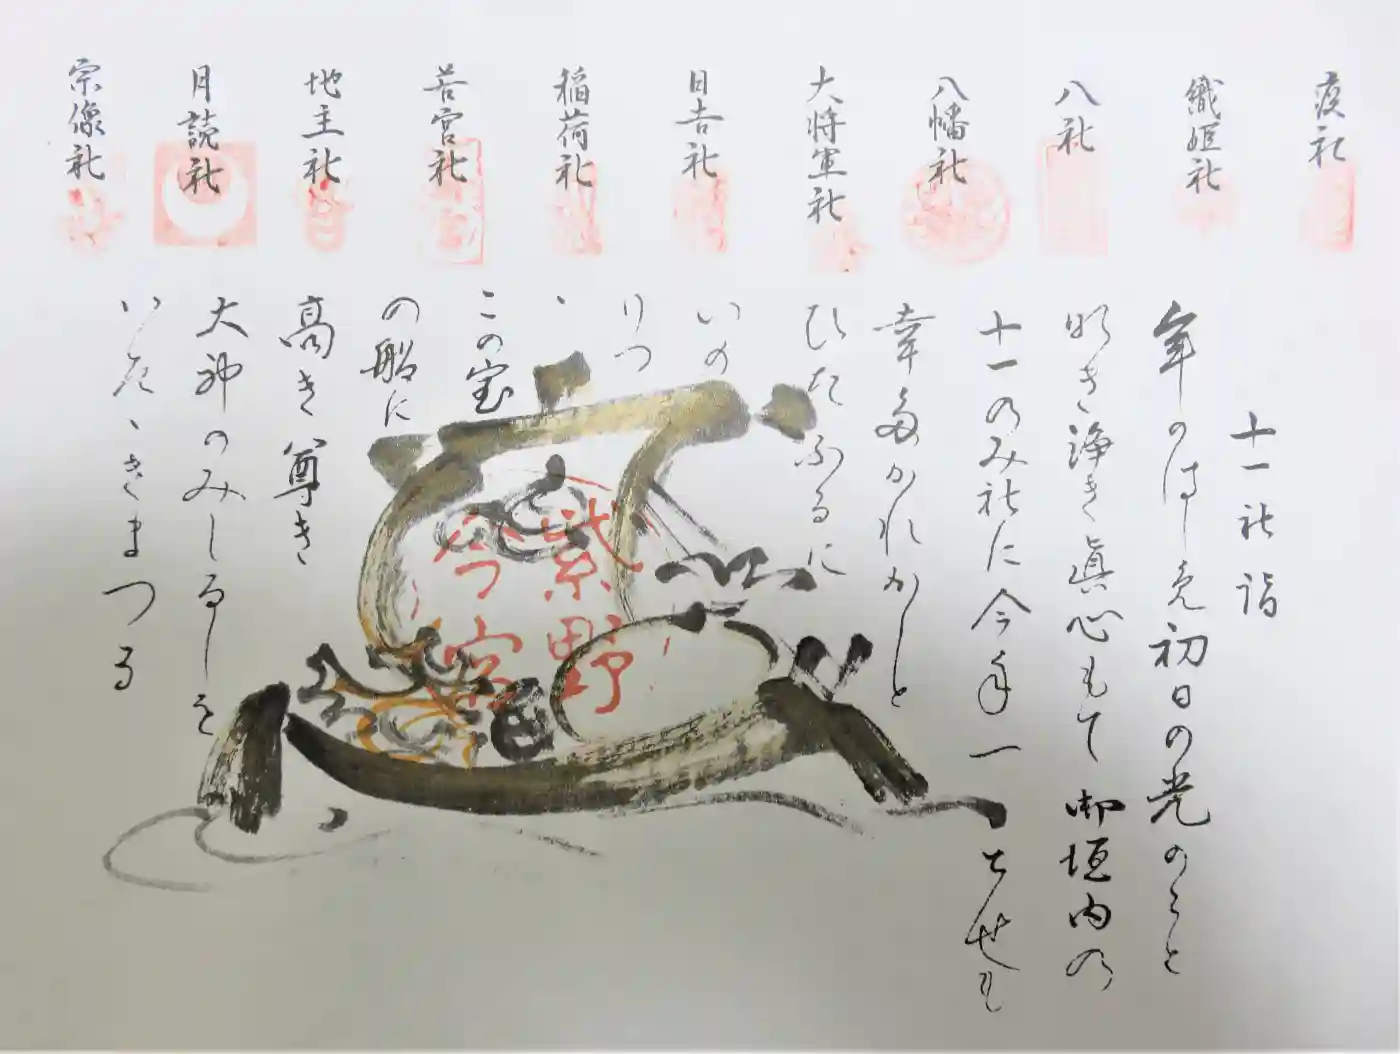 疫社
織姫社
八社
八幡社
大将軍社
日吉社
稲荷社
若宮社
地主社
月読社
宗像社
十一社詣
年のはじめ初日の光のごと
明き浄き眞心もて御垣内の
十一のみ社に今年一とせも
幸多かれかしと
ひたふるに
いの
りつ
ゝ
この宝
の船に
高き尊き
大神のみしるしを
いたゞきまつる
紫野
今宮